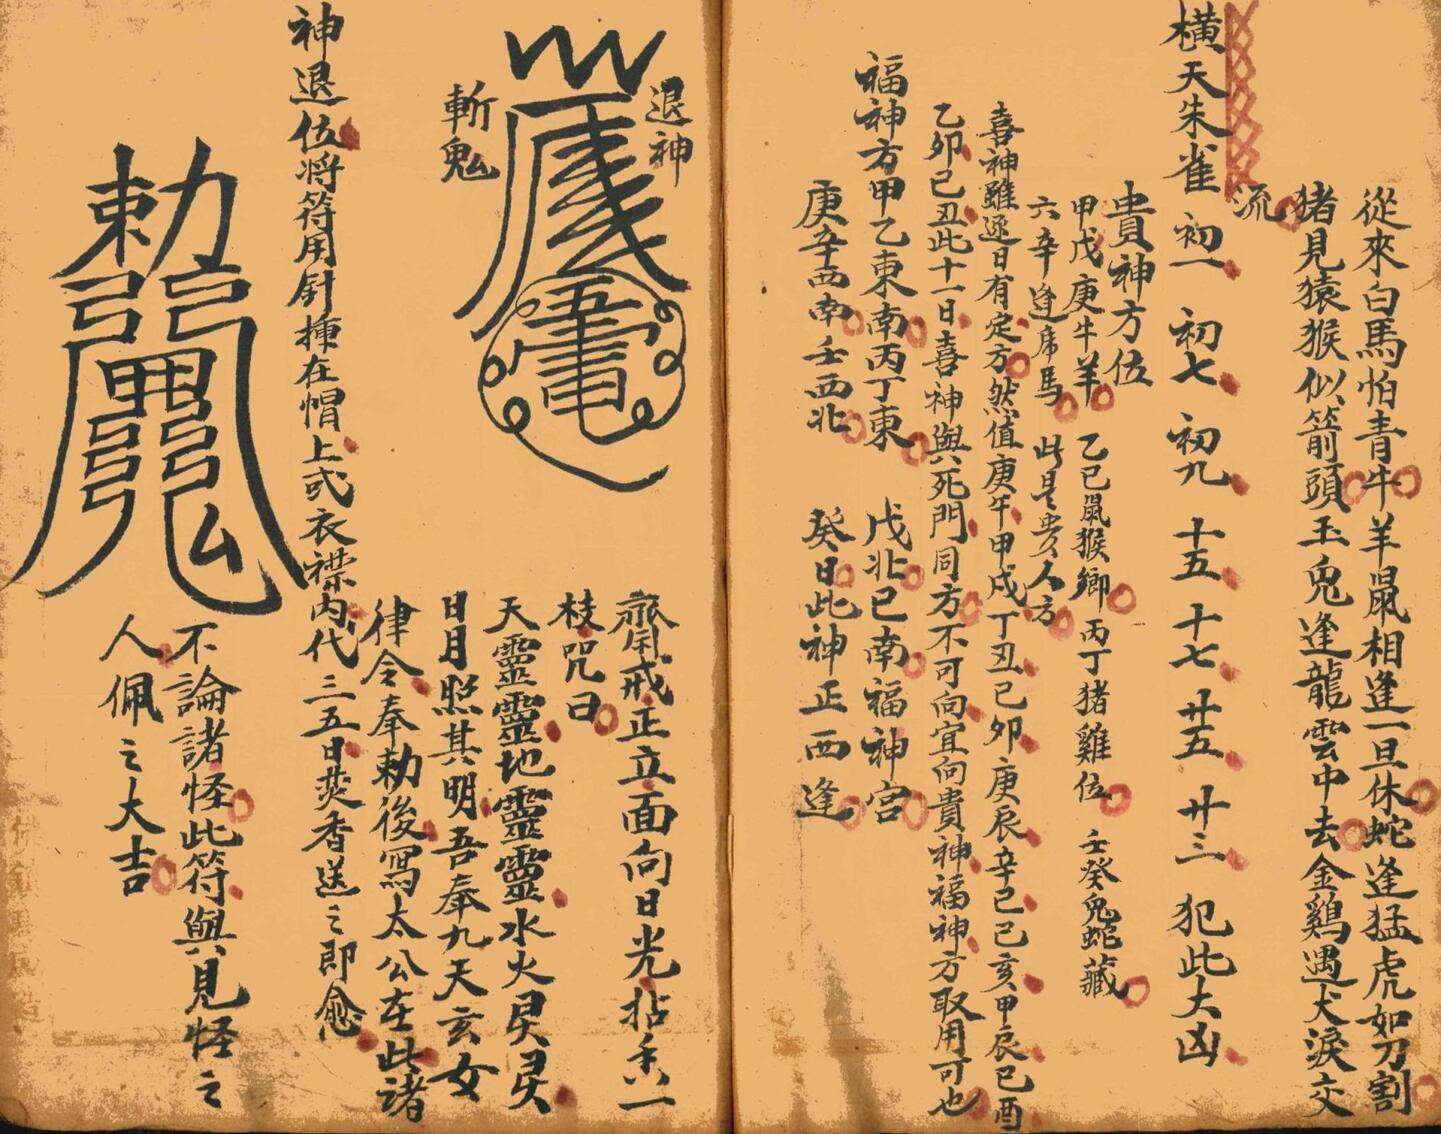 從來白馬怕青牛羊鼠相逢一旦休蛇逢猛虎如刀割
猪見猿猴似箭頭玉兔逢龍雲中去金鷄遇犬淚交
流
橫天朱雀 初一 初七 初九 十五 十七 廿五 廿三 犯此大凶
貴神方位
甲戊庚牛羊 乙己鼠猴鄉 丙丁猪雞位 壬癸兔蛇藏
六辛逢虎馬 此是貴人方
喜神雖逐日有定方然值庚午甲戌丁丑己卯庚辰辛巳己亥甲辰己酉
乙卯己丑此十一日喜神與死門同方不可向宜向貴神福神方取用可也
福神方甲乙東南丙丁東 戊北己南福神宮
庚辛西南壬西北 癸日此神正西逢
退神
斬鬼
齋戒正立面向日光拈香一
枝咒曰
天靈靈地靈靈水火灵灵
日月照其明吾奉九天玄女
律令奉勅後寫太公在此諸
神退位将符用針揷在帽上或衣襟内代三五日焚香送之即愈
勅
不論諸怪此符與見怪之
人佩之大吉